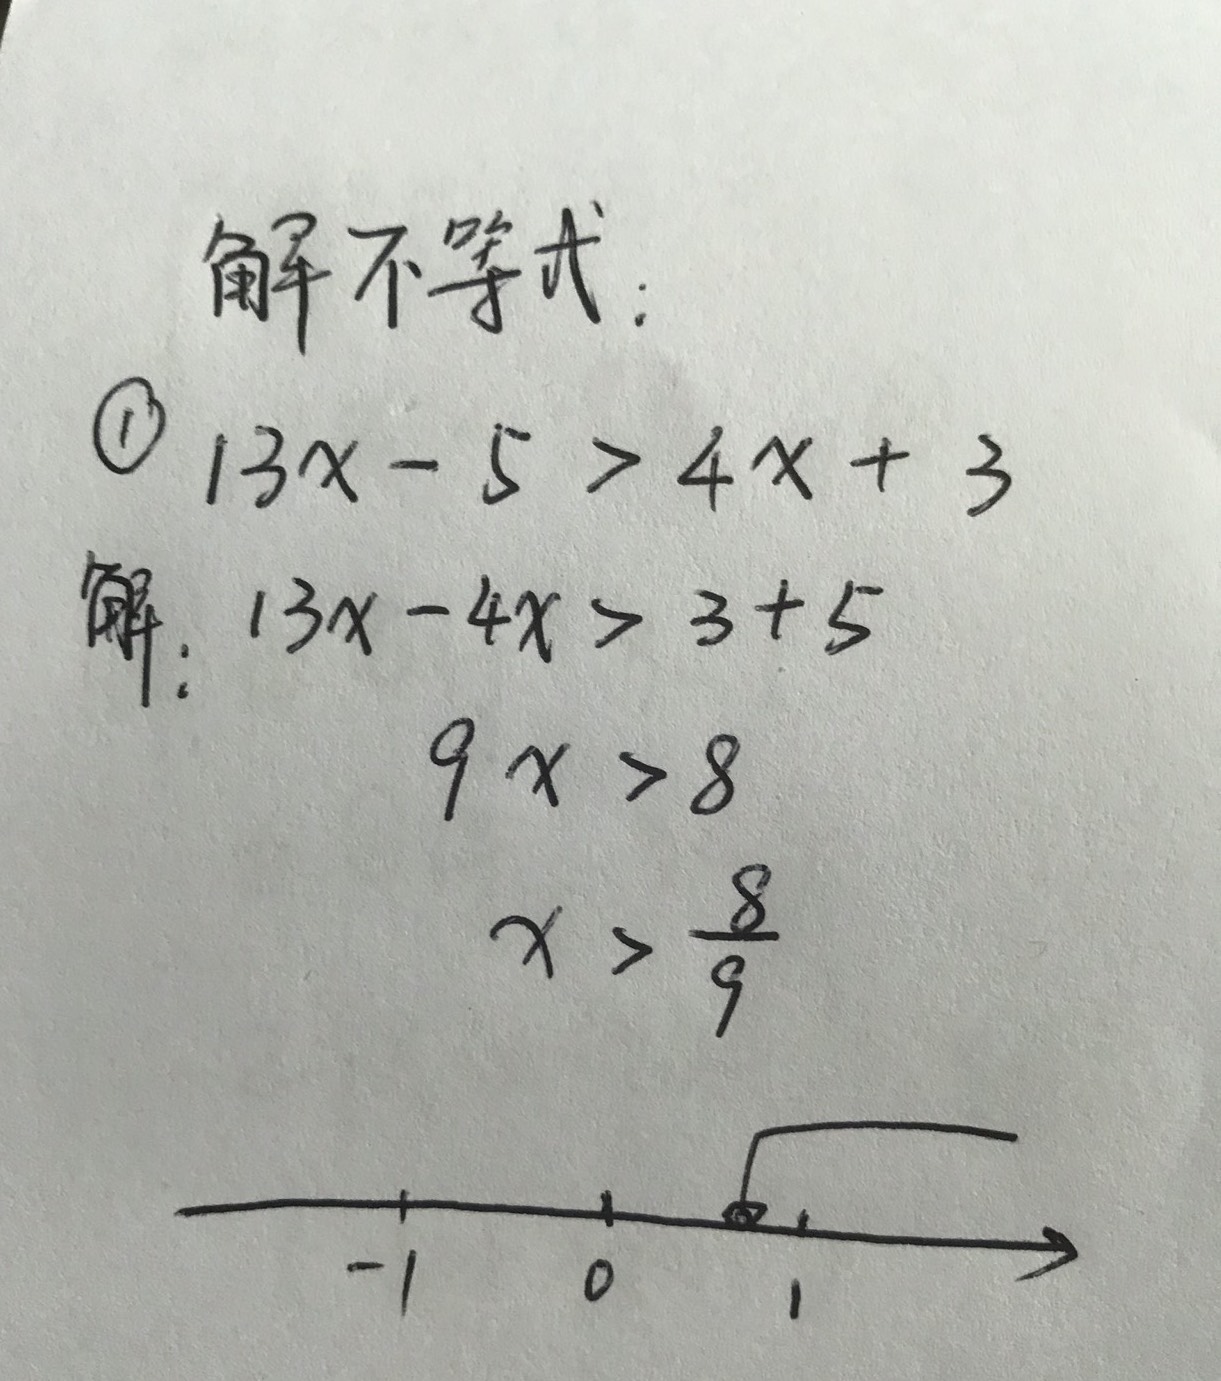 解不等式:
① 13x - 5 > 4x + 3
解: 13x - 4x > 3 + 5
9x > 8
x > 8/9
-1 0 1